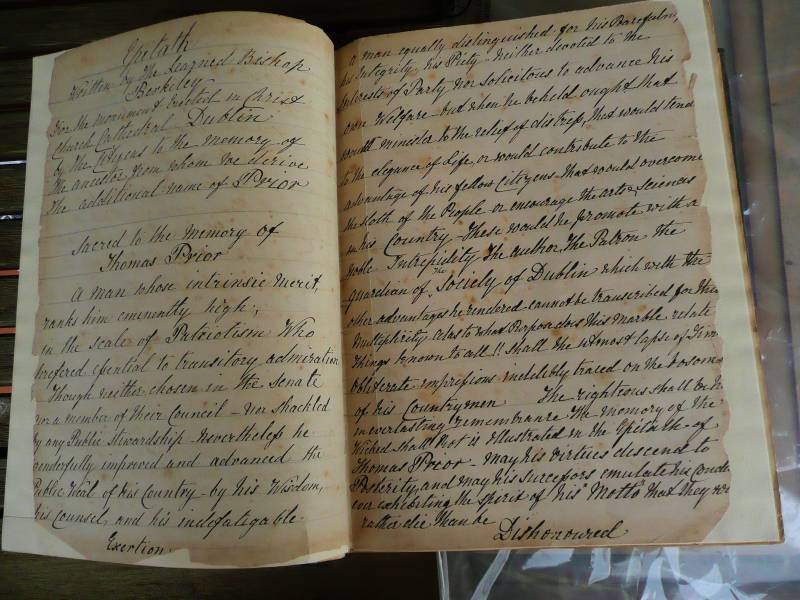 Epitath
written by the Learned Bishop
Berkiley
For the monument erected in Christ
church Cathedral Dublin
by the Citizens to the memory of
the ancestor from whom we derive
the additional name of Prior
Sacred to the memory of
Thomas Prior
A man whose intrinsic merit,
ranks him eminently high,
in the scale of Patriotism Who
prefered essential to transitory admiration
Though neither chosen in the Senate
nor a member of their Council – nor shackled
by any Public Stewardship nevertheless he
wonderfully improved and advanced the
Public Weal of his Country – by his Wisdom,
his Counsel, and his indefatigable
Exertion.
a man equally distinguished for his
his Integrity his Piety. Neither devoted to the
Interests of Party nor solicitous to advance his
own Welfare – but when he beheld ought that
would minister to the relief of distress, that would tend
to the elegance of Life, or would contribute to the
advantage of his fellow Citizens that would overcome
the sloth of the People or encourage the arts & Sciences
in his Country – These would he promote with a
noble Intrepidity The author, The Patron the
guardian of The Society of Dublin which with the
other advantages he rendered cannot be transcribed for their
multiplicity alas to what Purpose does this marble relate
Things known to all!! shall the utmost lapse of Time
obliterate impressions indelebly traced on the bosoms
of his Countrymen The righteous shall be h
in everlasting remembrance The memory of the
Wicked shall Rot is illustrated in the Epitath of
Thomas Prior – may his virtues descend to
Posterity, and may his successors emulate his
ever exhibiting the spirit of his Motto that they
rather die than be
Dishonoured